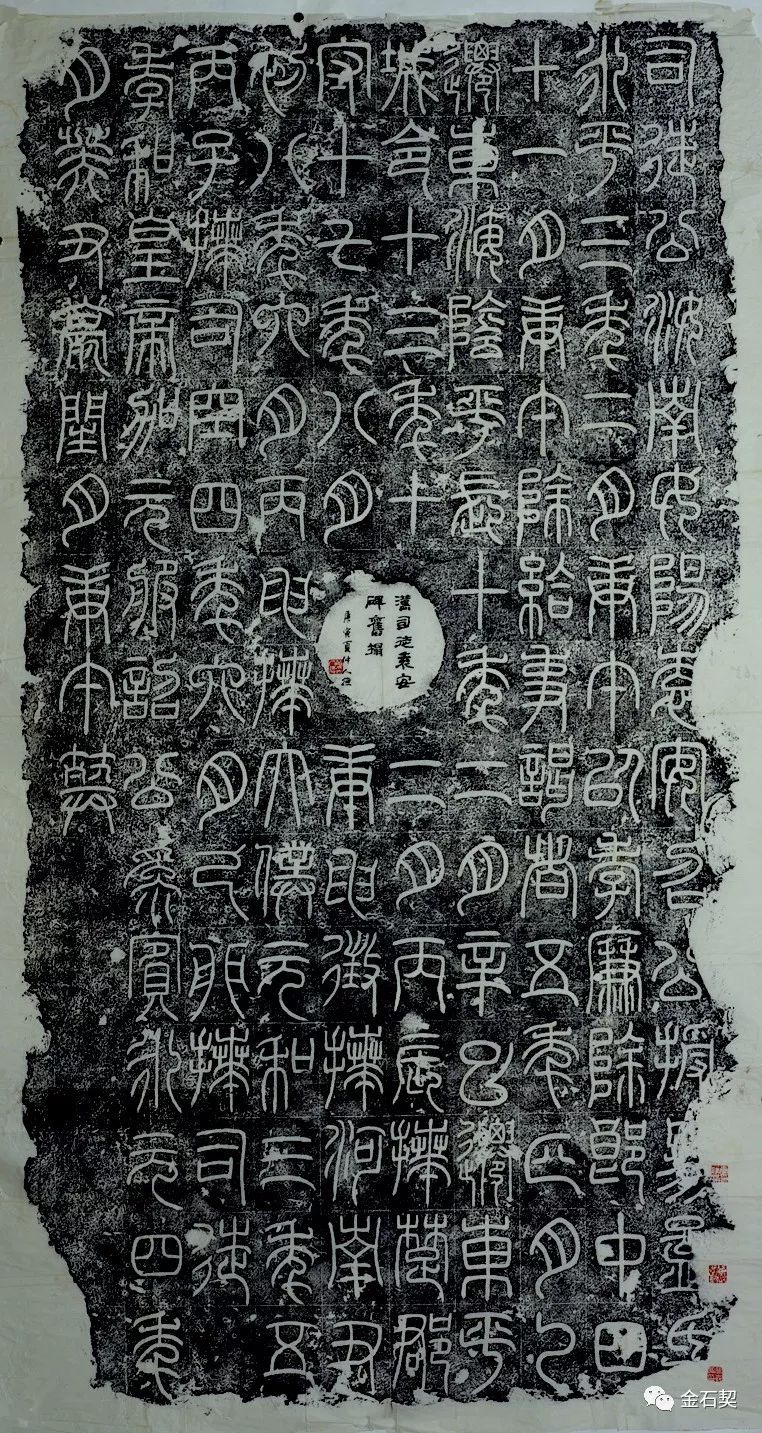 司徒公汝南女陽袁安召公授易孟氏
永平三年二月庚午以孝廉除郎中四
十一月庚午除給事謁者五年正月乙
遷東海陰平長十年二月辛巳遷東平
城令十三年十二月丙辰拜楚郡
守十七年八月庚申徵拜河南尹
初八年六月丙申拜太僕元和三年五
丙子拜司空四年六月己卯拜司徒
孝和皇帝加元服詔公為賓永元四年
月癸丑薨閏月庚午葬
漢司徒袁安
碑舊搨
庚寅夏仲
金石契